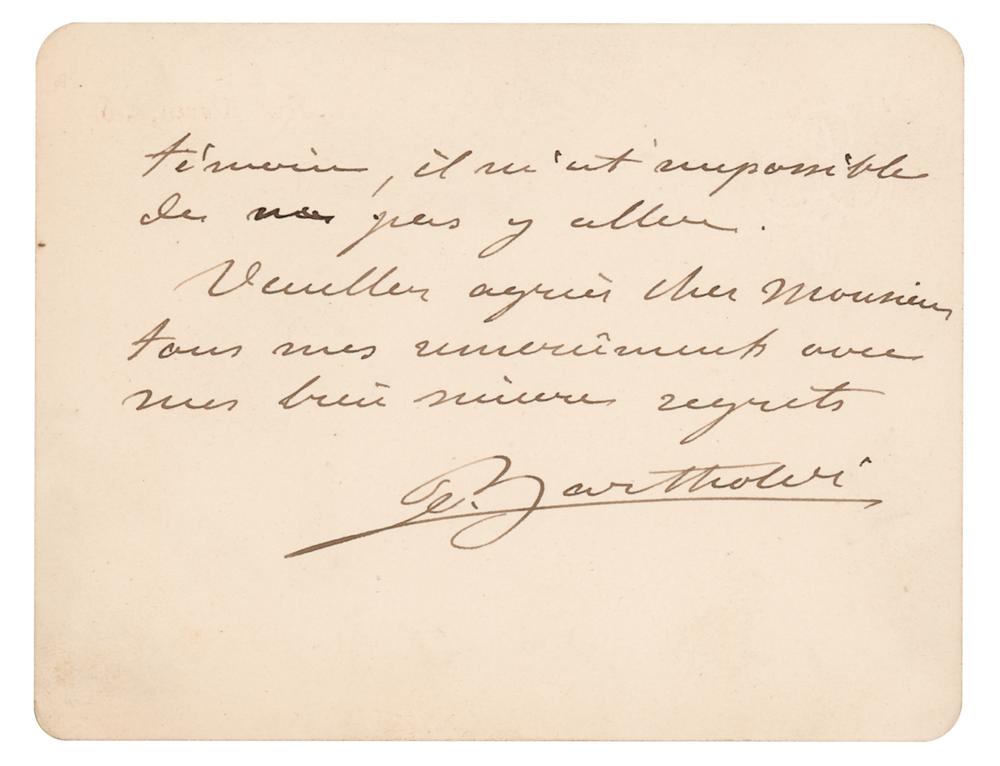 témoin, il m'est impossible
de ne pas y aller.
Veuillez agréer cher Monsieur
tous mes remerciments avec
mes bien sincères regrets
Bartholdi